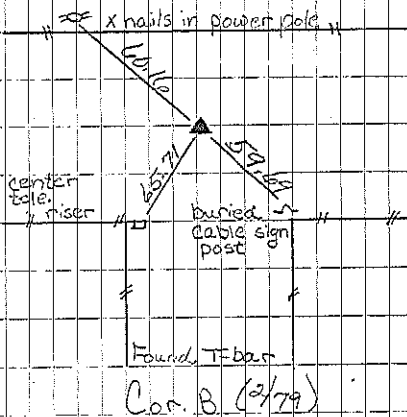 x nails in power pole
60.16
65.71
59.69
center
tele.
riser
buried
cable sign
post
Found T-bar
Cor. B (2/79)